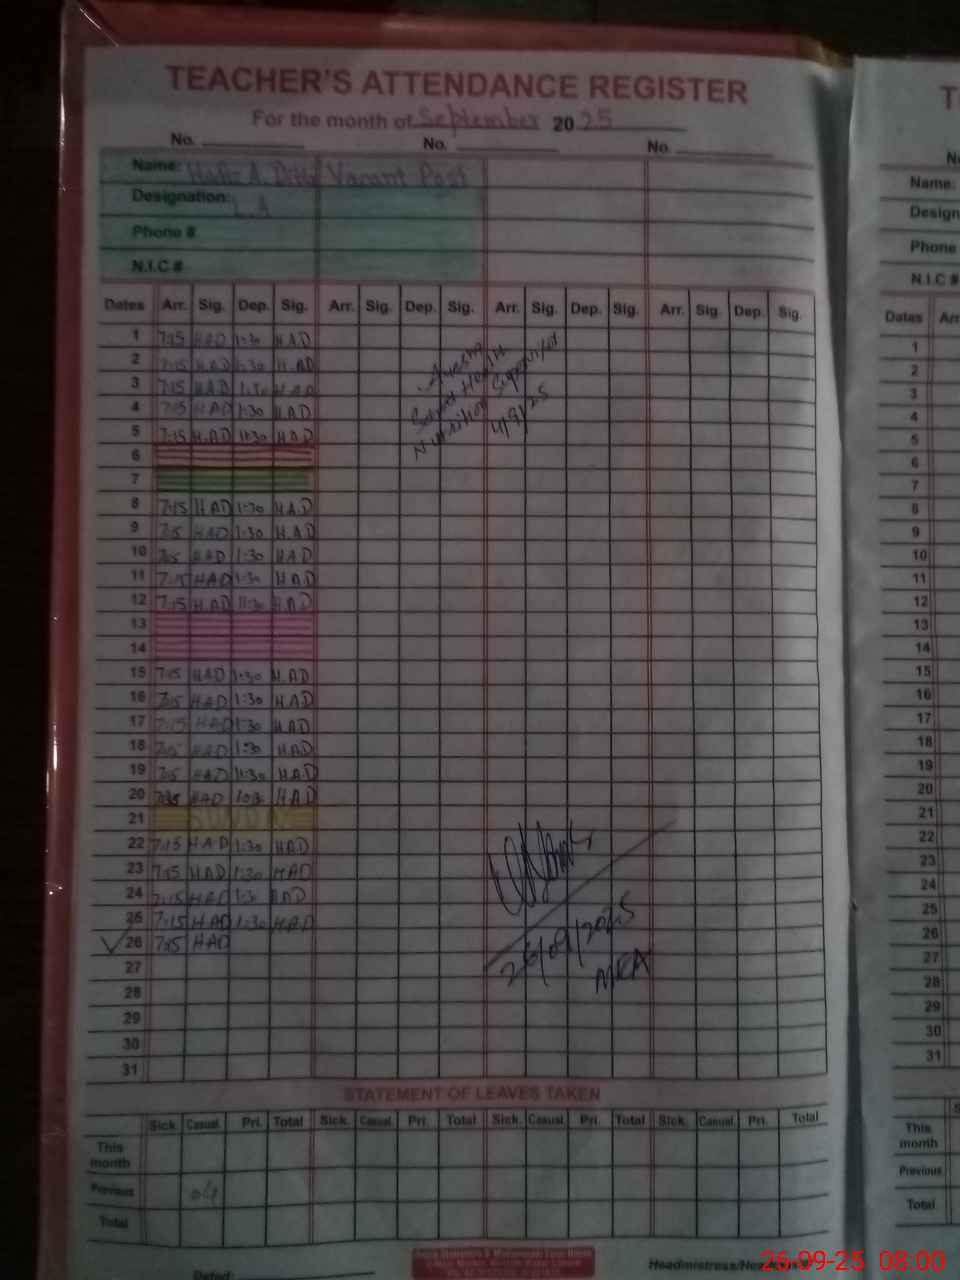 TEACHER'S ATTENDANCE REGISTER
For the month of September 2025
No. No. No.
Name: Hafiz A. Ditta Vacant Post
Designation: L.A
Phone #
N.I.C #
Dates Arr. Sig. Dep. Sig. Arr. Sig. Dep. Sig. Arr. Sig. Dep. Sig. Arr. Sig. Dep. Sig.
1 7:15 HAD 1:30 HAD
2 7:15 HAD 1:30 H.AD
3 7:15 HAD 1:30 HAD
4 7:15 HAD 1:30 HAD
5 7:15 H.AD 11:30 HAD
Health
Nutrition Supervisor
4/9/25
6
7
8 7:15 HAD 1:30 HAD
9 7:15 HAD 1:30 H.AD
10 7:15 HAD 1:30 HAD
11 7:15 HAD 1:30 HAD
12 7:15 H.AD 11:30 HAD
13
14
15 7:15 HAD 1:30 H.AD
16 7:15 HAD 1:30 HAD
17 7:15 HAD 1:30 HAD
18 7:15 HAD 1:30 HAD
19 7:15 HAD 11:30 HAD
20 HAD HAD
21 SUNDAY
22 7:15 HAD 1:30 HAD
23 7:15 HAD 1:30 HAD
24 7:15 HAD 1:30 HAD
25 7:15 HAD 1:30 HAD
26 7:15 HAD
26/09/2025
MEA
27
28
29
30
31
STATEMENT OF LEAVES TAKEN
Sick. Casual. Pri. Total Sick. Casual. Pri. Total Sick. Casual. Pri. Total Sick. Casual. Pri. Total
This month
Previous 04
Total
Dated:
Headmistress/
Name:
Design
Phone
N.I.C #
Dates Arr
1
2
3
4
5
6
7
8
9
10
11
12
13
14
15
16
17
18
19
20
21
22
23
24
25
26
27
28
29
30
31
This month
Previous
Total
26-09-25 08:00